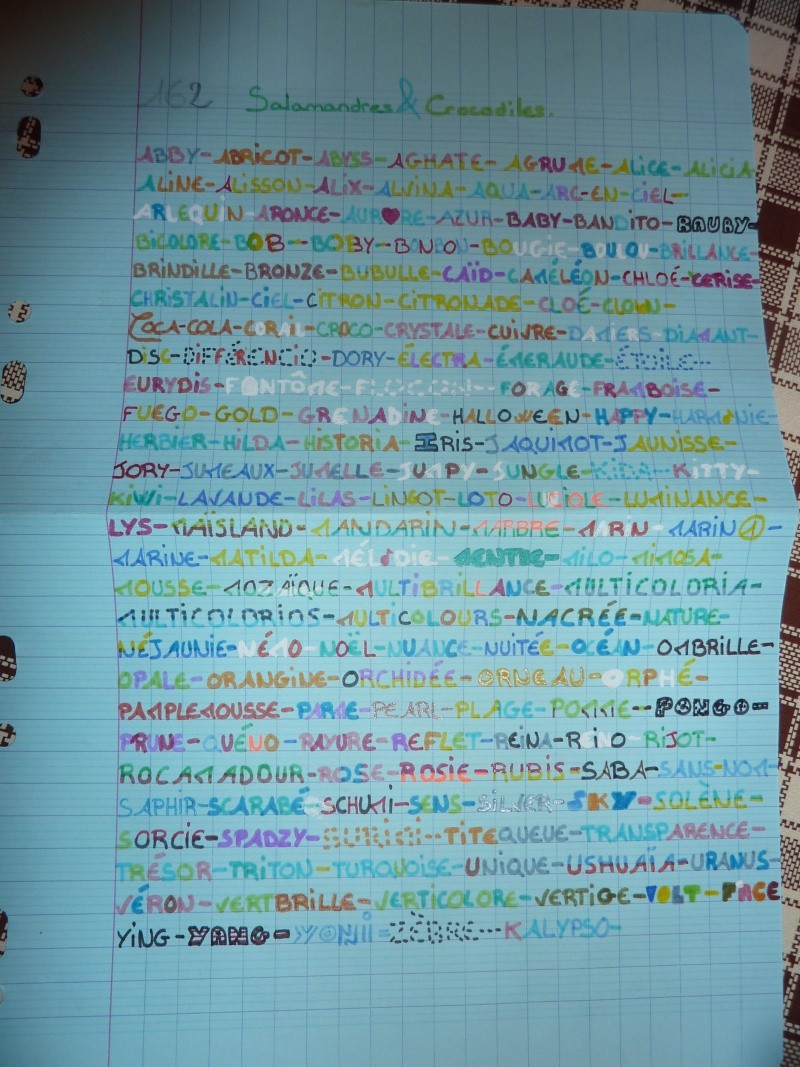 162 Salamandres & Crocodiles.
ABBY-ABRICOT-ABYSS-AGHATE-AGRUME-ALICE-ALICIA
ALINE-ALISSON-ALIX-ALVINA-AQUA-ARC-EN-CIEL-
ARLEQUIN-ARONCE-AUR♥RE-AZUR-BABY-BANDITO-BAUBY-
BICOLORE-BOB-BOBY-BONBON-BOUGIE-BOULOU-BRILLANCE-
BRINDILLE-BRONZE-BUBULLE-CAÏD-CAMÉLÉON-CHLOÉ-CERISE-
CHRISTALIN-CIEL-CITRON-CITRONADE-CLOÉ-CLOWN-
COCA-COLA-CORAIL-CROCO-CRYSTALE-CUIVRE-DAMIERS-DIAMANT-
DISC-DIFFÉRENCIO-DORY-ÉLECTRA-ÉMERAUDE-ÉTOILE-
EURYDIS-FANTÔME-FLOCON-FORAGE-FRAMBOISE-
FUEGO-GOLD-GRENADINE-HALLOWEEN-HAPPY-HARM♪NIE-
HERBIER-HILDA-HISTORIA-IRIS-JAQUIMOT-JAUNISSE-
JORY-JUMEAUX-JUMELLE-JUMPY-JUNGLE-KIBA-KITTY-
KIWI-LAVANDE-LILAS-LINGOT-LOTO-LUCIOLE-LUMINANCE-
LYS-MAÏSLAND-MANDARIN-MARBRE-MARIN-MARIN①-
MARINE-MATILDA-MÉL♪DIE-MENTHE-MILO-MIMOSA-
MOUSSE-MOZAÏQUE-MULTIBRILLANCE-MULTICOLORIA-
MULTICOLORIOS-MULTICOLOURS-NACRÉE-NATURE-
NÉJAUNIE-NÉMO-NOËL-NUANCE-NUITÉE-OCÉAN-OMBRILLE-
OPALE-ORANGINE-ORCHIDÉE-ORNEAU-ORPHÉ-
PAMPLEMOUSSE-PARME-PEARL-PLAGE-POMME-PONGO-
PRUNE-QUÉMO-RAYURE-REFLET-REINA-RIO-RIJOT-
ROCAMADOUR-ROSE-ROSIE-RUBIS-SABA-SANS-NOM-
SAPHIR-SCARABÉ-SCHUMI-SENS-SILVER-SKY-SOLÈNE-
SORCIE-SPADZY-SURIMI-TITEQUEUE-TRANSPARENCE-
TRÉSOR-TRITON-TURQUOISE-UNIQUE-USHUAÏA-URANUS-
VÉRON-VERTBRILLE-VERTICOLORE-VERTIGE-VOLT-FACE
YING-YANG-YONII-ZÈBRE-KALYPSO-